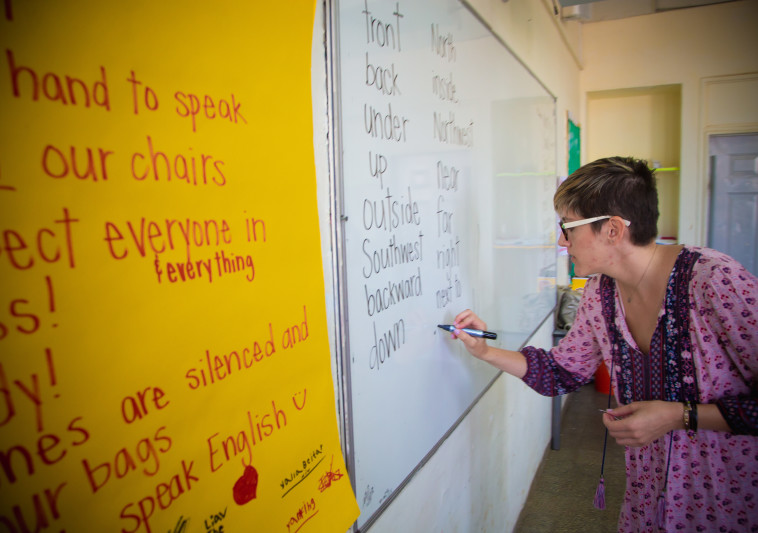 hand to speak
our chairs
everyone in
& everything
are silenced and
our bags
speak English
Liav
front
back
under
up
outside
Southwest
backward
down
North
inside
Northwest
near
far
right
next to